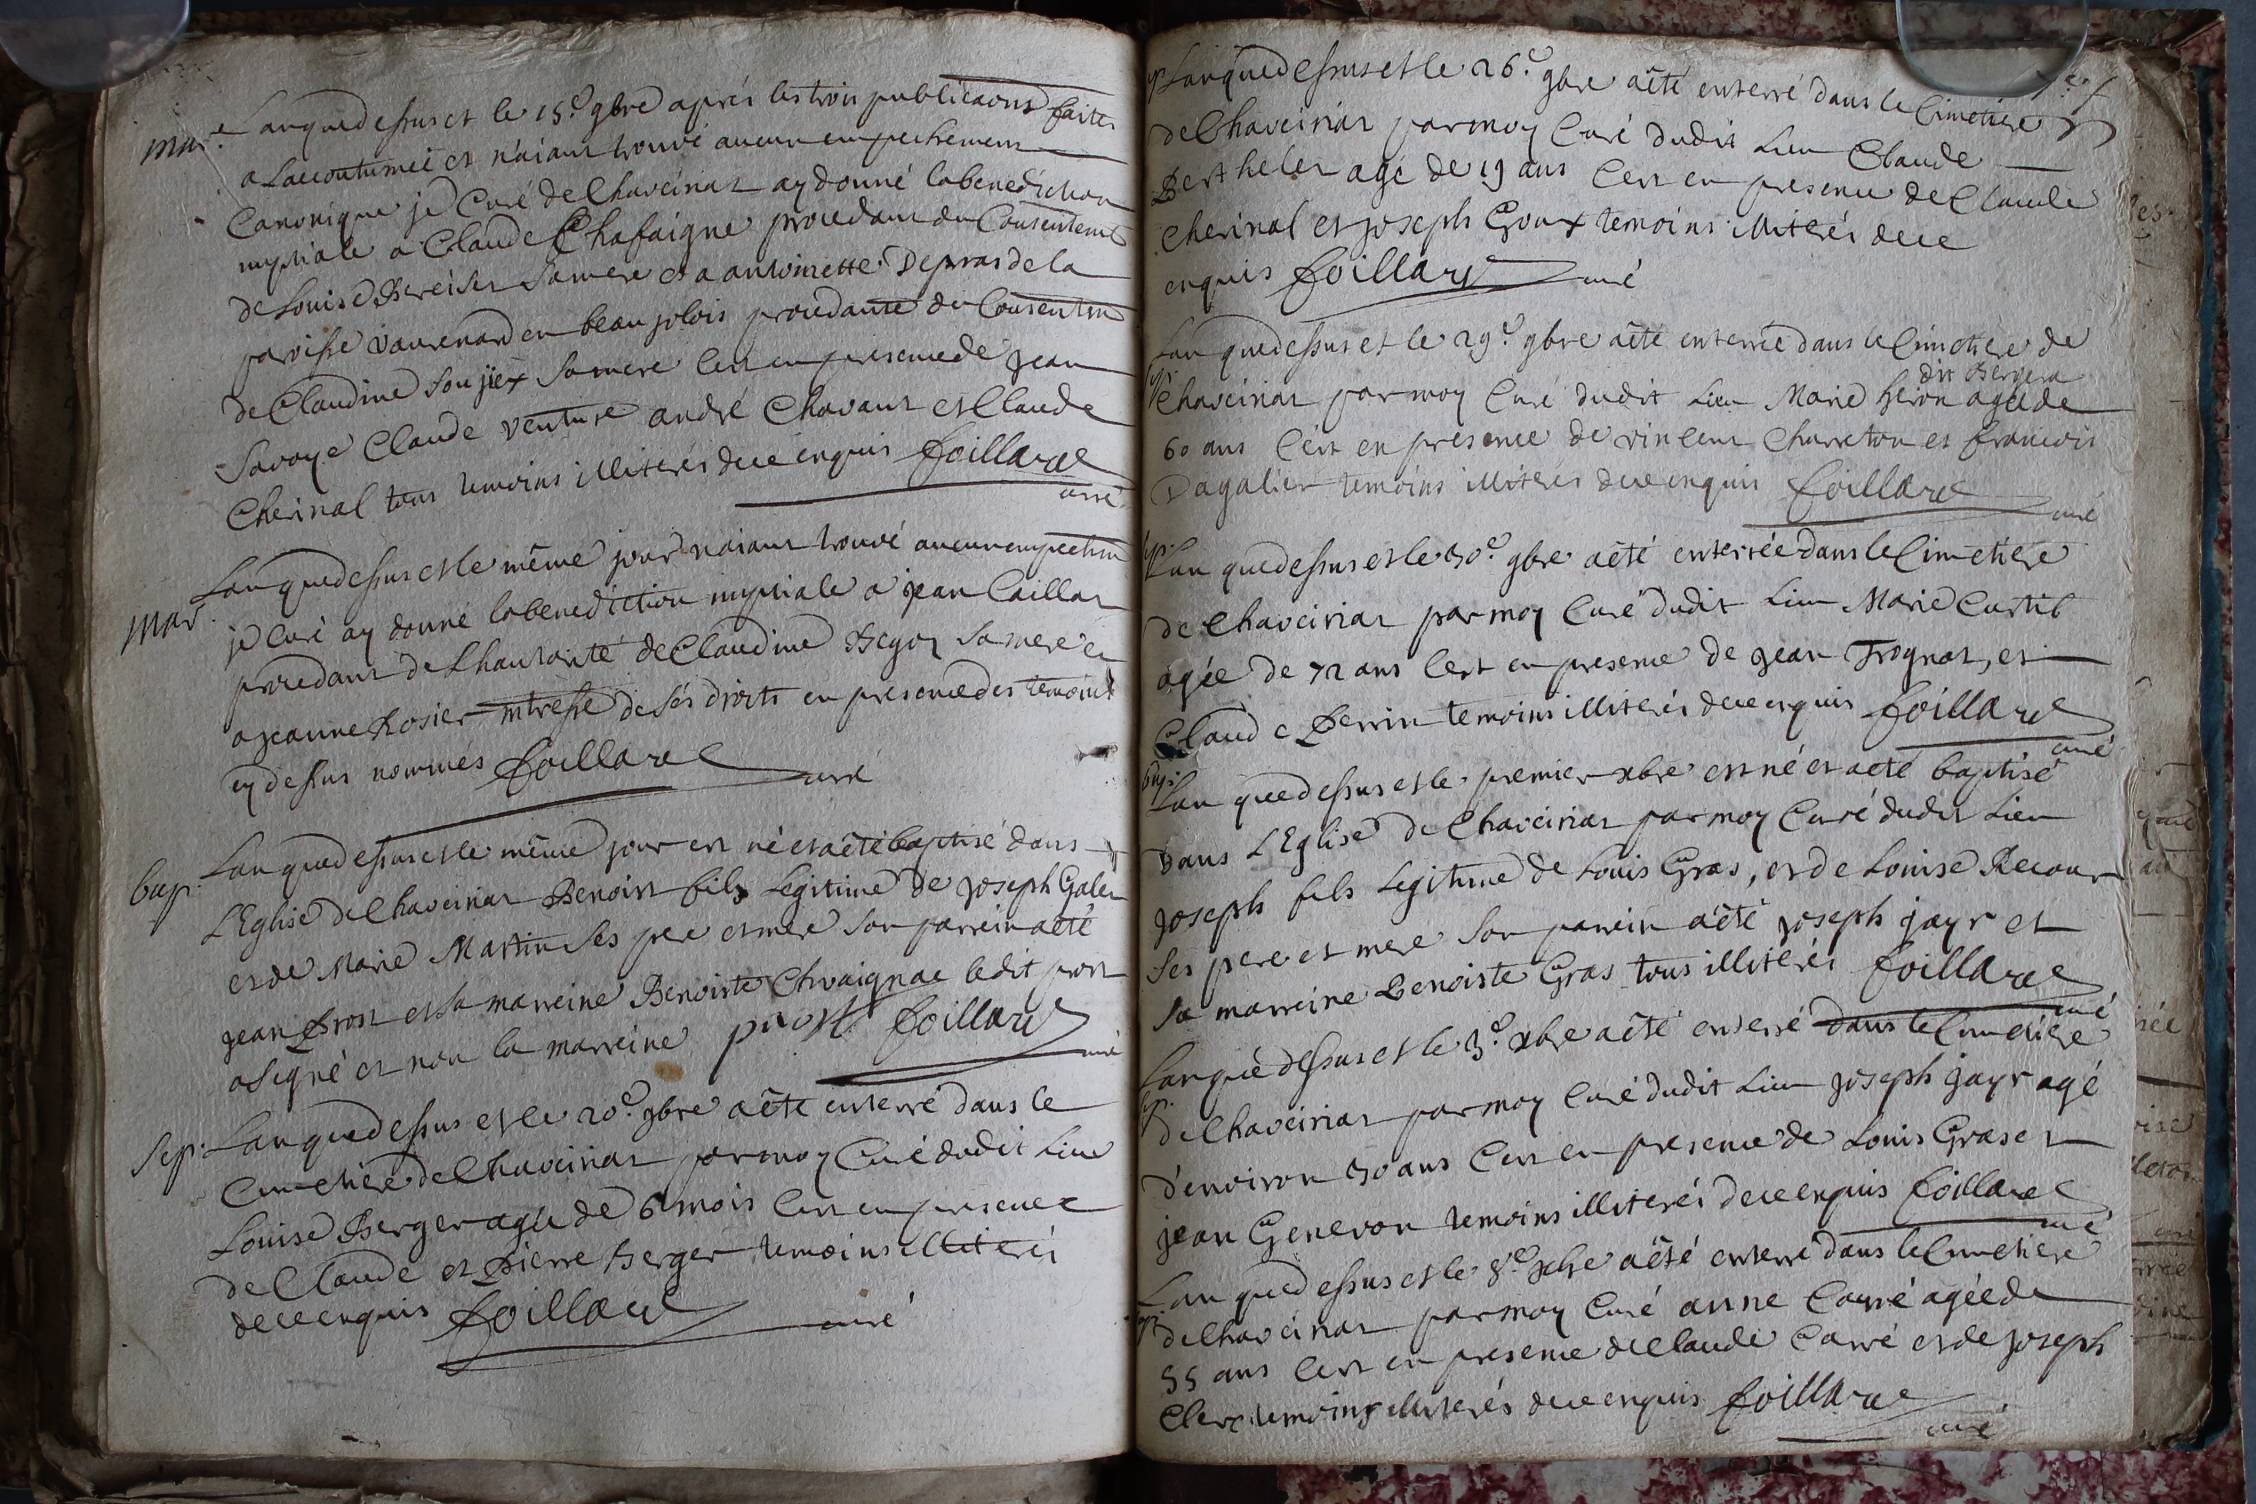 mar.e L'an que dessus et le 15.e 9bre aprés les trois publicaons faites
a Laccoutumée et n'aiant trouvé aucun empechement
Canonique je Curé de Chaveiriat ay donné la benediction
nuptiale a Claude Chafaigne procedant du Consentemt
de Louise Bereiset sa mere et a antoinette Depras de la
paroisse vaurenard en beaujolois procedante du Consentm
de Claudine Soujiex sa mere C'est en presence de Jean
Savoye Claude venture andré Chavant et Claude
Cherinal tous temoins illiterés de ce enquis foillard
curé
mar. L'an que dessus et le même jour n'aiant trouvé aucun empechm
je Curé ay donné la benediction nuptiale a jean Caillat
procedant de L'hautorité de Claudine Begoz sa mere et
a jeanne Rosier mtresse de ses droits en presence des temoins
cy dessus nommés foillard curé
bap. L'an que dessus et le même jour est né et a êté baptisé dans
L'Eglise de Chaveiriat Benoist fils Legitime de joseph Galet
et de Marie Martin Ses pere et mere Son parrein a eté
jean Prost et sa marreine Benoiste Chvaignac ledit prost
a signé et non la marreine prost foillard
curé
Sep. L'an que dessus et le 20.e 9bre a été enterré dans le
Cimetiere de Chaveiriat par moy Curé dudit Lieu
Louise Berger agée de 6 mois C'est en presence
de Claude et Pierre Berger temoins illiterés
de ce enquis foillard curé
sep. L'an que dessus et le 26.e 9bre a êté enterré dans le Cimetiere
de Chaveiriat par moy Curé dudit Lieu Claude
Berthelet agé de 19 ans C'est en presence de Claude
Cherinal et joseph Goux temoins illiterés de ce
enquis foillard curé
L'an que dessus et le 29.e 9bre a êté enterrée dans le Cimetiere de
dit Bergera
Chaveiriat par moy Curé dudit Lieu Marie heron agée de
60 ans C'est en presence de vincent Charreton et francois
Dagalier temoins illiterés de ce enquis foillard
curé
sep. L'an que dessus et le 30.e 9bre a êté enterrée dans le Cimetiere
de Chaveiriat par moy Curé dudit Lieu Marie Curtil
agée de 72 ans C'est en presence de jean Trognat, et
Claude Perrin temoins illiterés de ce enquis foillard
curé
bap. L'an que dessus et le premier xbre est né et a eté baptisé
dans L'Eglise de Chaveiriat par moy Curé dudit Lieu
joseph fils Legitime de Louis Gras, et de Louise Recour
Ses pere et mere Son parrein a êté joseph jayr et
sa marreine Benoiste Gras tous illiterés foillard
curé
L'an que dessus et le 3.e xbre a êté enterré dans le Cimetiere
sep. de Chaveiriat par moy Curé dudit Lieu joseph jayr agé
d'environ 30 ans C'est en presence de Louis Gras et
jean Genevon temoins illiterés de ce enquis foillard
curé
L'an que dessus et le 8.e xbre a êté enterré dans le Cimetiere
sep. de Chaveiriat par moy Curé anne Carré agée de
55 ans C'est en presence de Claude Carré et de joseph
Clerc temoins illiterés de ce enquis foillard
curé